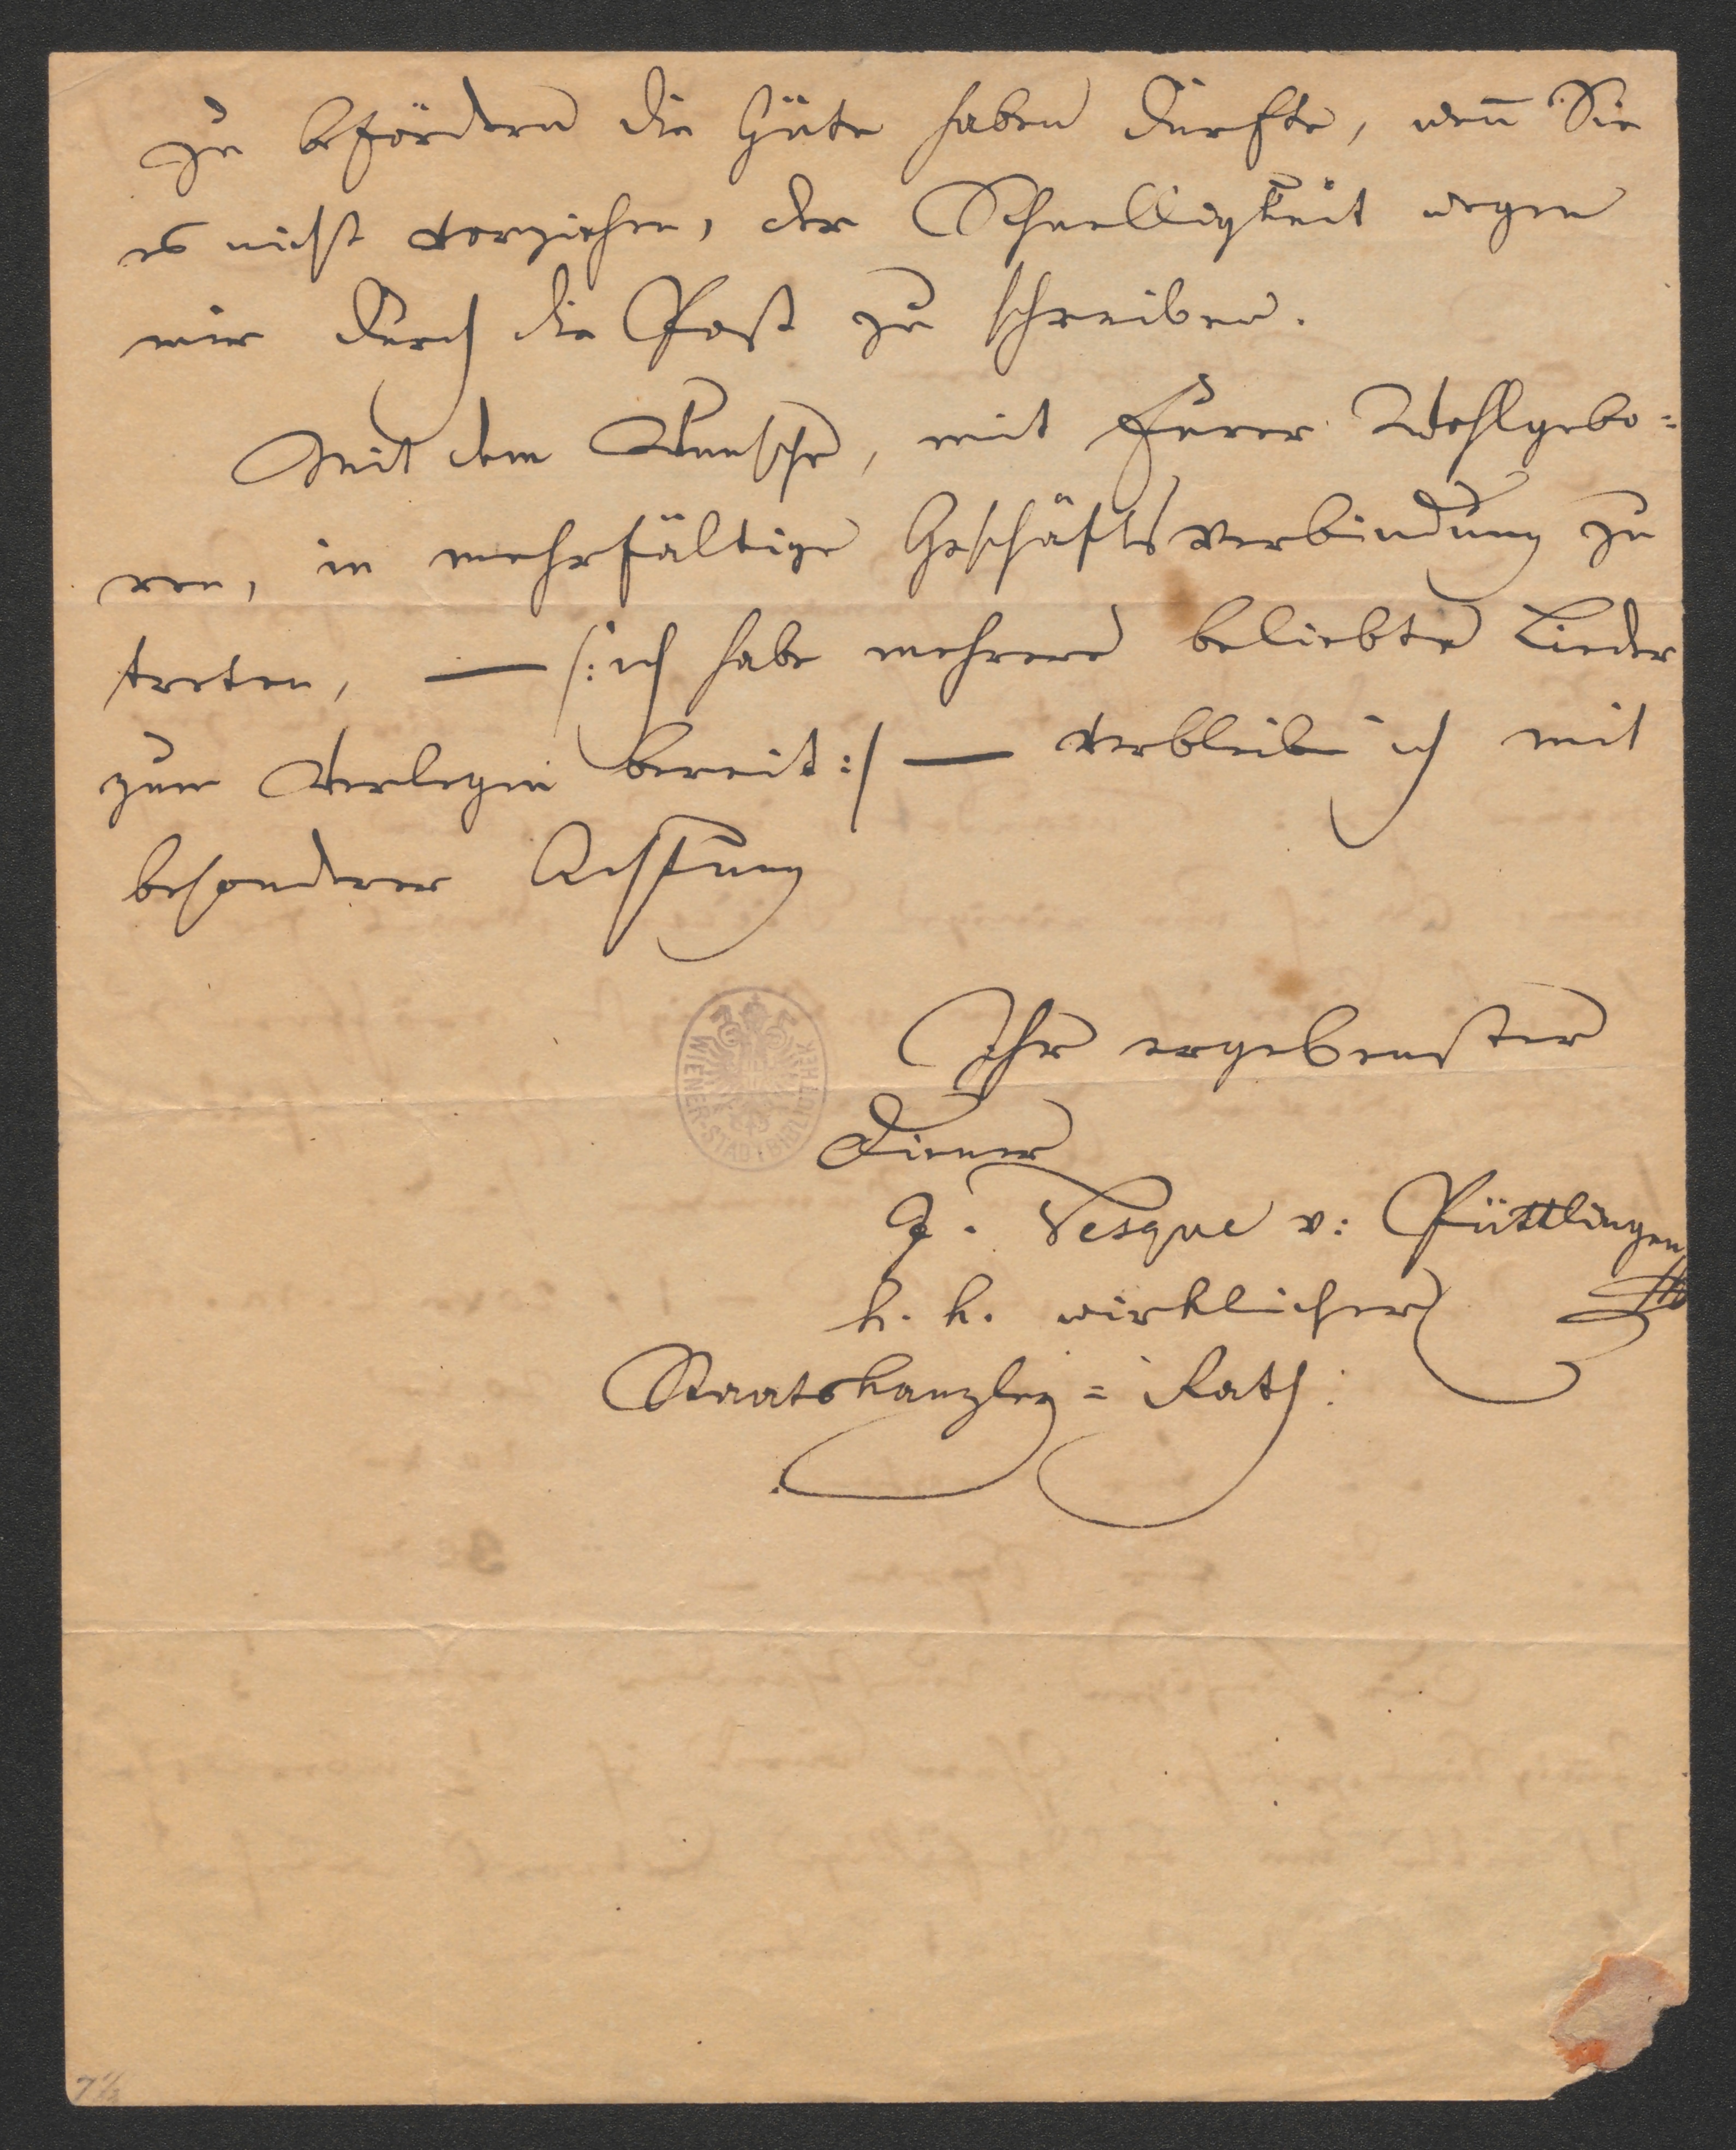 zu befördern die Güte haben dürfte, weñ Sie
es nicht vorziehen, der Schnelligkeit wegen
mir durch die Post zu schreiben.
Mit dem Wunsche, mit Euer Wohlgebo=
ren, in mehrfältige Geschäftsverbindung zu
treten, — /: ich habe mehrere beliebte Lieder
zum Verlegen bereit :/ — verbleibe ich mit
besonderer Achtung
Ihr ergebenster
Diener
J. Vesque v: Püttlingen
k. k. wirklicher
Staatskanzley = Rath.
WIENER-STADTBIBLIOTHEK
7 1/2